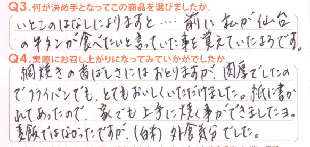 Q3.何が決め手となってこの商品を選びましたか。
いとこのはなしによりますと…前に私が仙台
の牛タンが食べたいと言っていた事を覚えていたようです。
Q4.実際にお召し上がりになってみていかがでしたか。
網焼きの香ばしさにはおとりますが、肉厚でしたの
でフライパンでも、とてもおいしくいただけました。紙に書か
れてあったので、家でも上手に焼く事ができましたヨ。
麦飯ではなかったですが、(白米)外食気分でした。